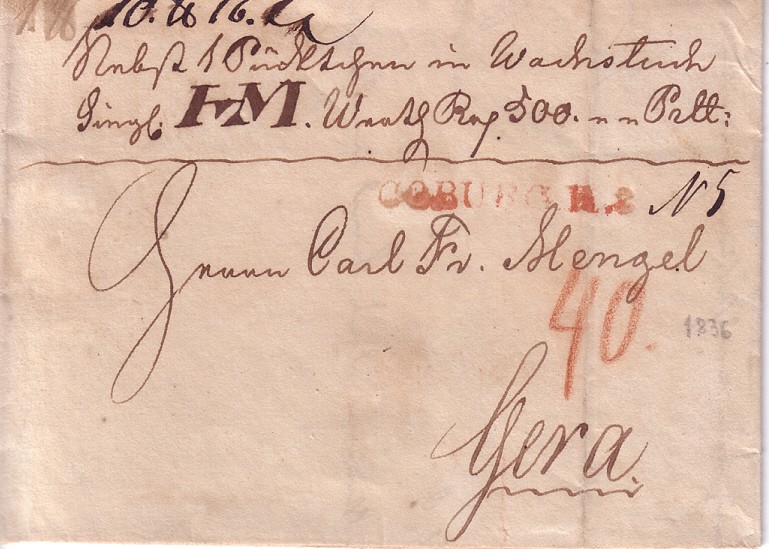 10. 16.
Nebst 1 Päcktchen in Wachstuch
Singl. FM. Werth 500. Prtt:
COBURG R.2 N 5
Herrn Carl Fr. Mengel
40.
1836
Gera.